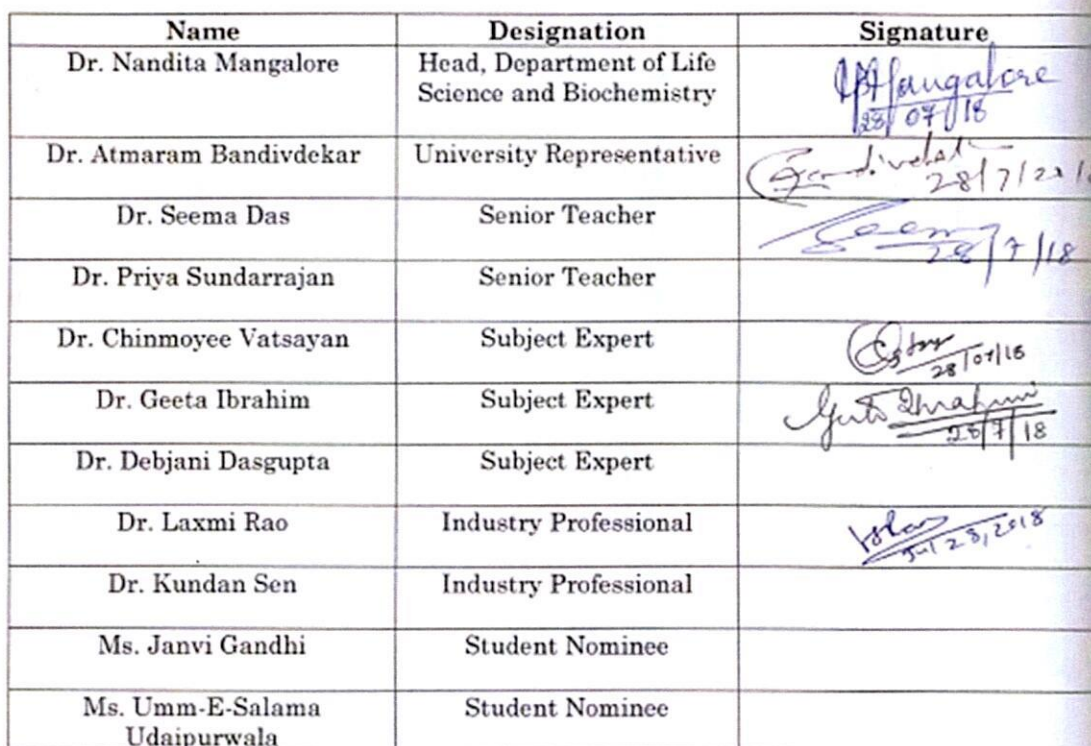 Name Designation Signature
Dr. Nandita Mangalore Head, Department of Life
Science and Biochemistry
28/07/18
Dr. Atmaram Bandivdekar University Representative
28/7/20
Dr. Seema Das Senior Teacher
28/7/18
Dr. Priya Sundarrajan Senior Teacher
Dr. Chinmoyee Vatsayan Subject Expert
28/07/18
Dr. Geeta Ibrahim Subject Expert Geeta Ibrahim
28/7/18
Dr. Debjani Dasgupta Subject Expert
Dr. Laxmi Rao Industry Professional
Jul 28, 2018
Dr. Kundan Sen Industry Professional
Ms. Janvi Gandhi Student Nominee
Ms. Umm-E-Salama Student Nominee
Udaipurwala